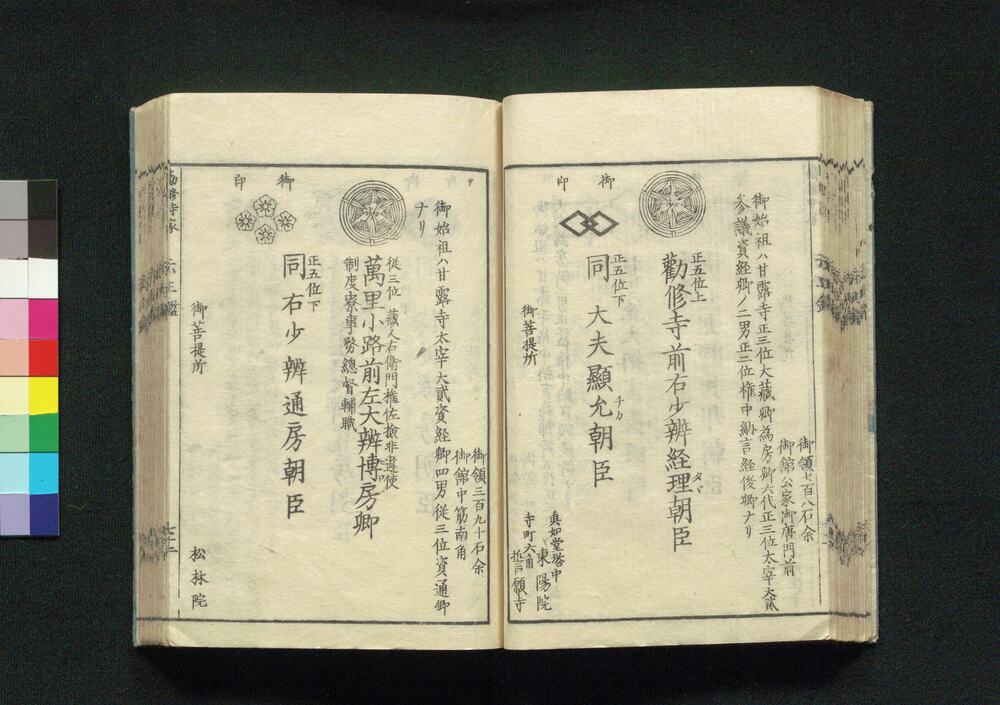 御領七百八石余
御館公家御唐門前
御始祖ハ甘露寺正三位大藏卿為房卿六代正三位太宰大貳
参議資経卿ノ二男正三位権中納言経俊卿ナリ
正五位上
勸修寺前右少辨経理朝臣
御印
正五位下
同大夫顯允朝臣
御菩提所
真如堂塔中
東陽院
寺町六角
誓願寺
御領三百九十石余
御館中筋南角
御始祖ハ甘露寺太宰大貳資経卿四男従三位資通卿
ナリ
従三位 藏人右衛門権佐撿非違使
萬里小路前左大辨博房卿
制度寮事務總督輔職
御印
正五位下
同右少辨通房朝臣
御菩提所
松林院
勸修寺家
七十二